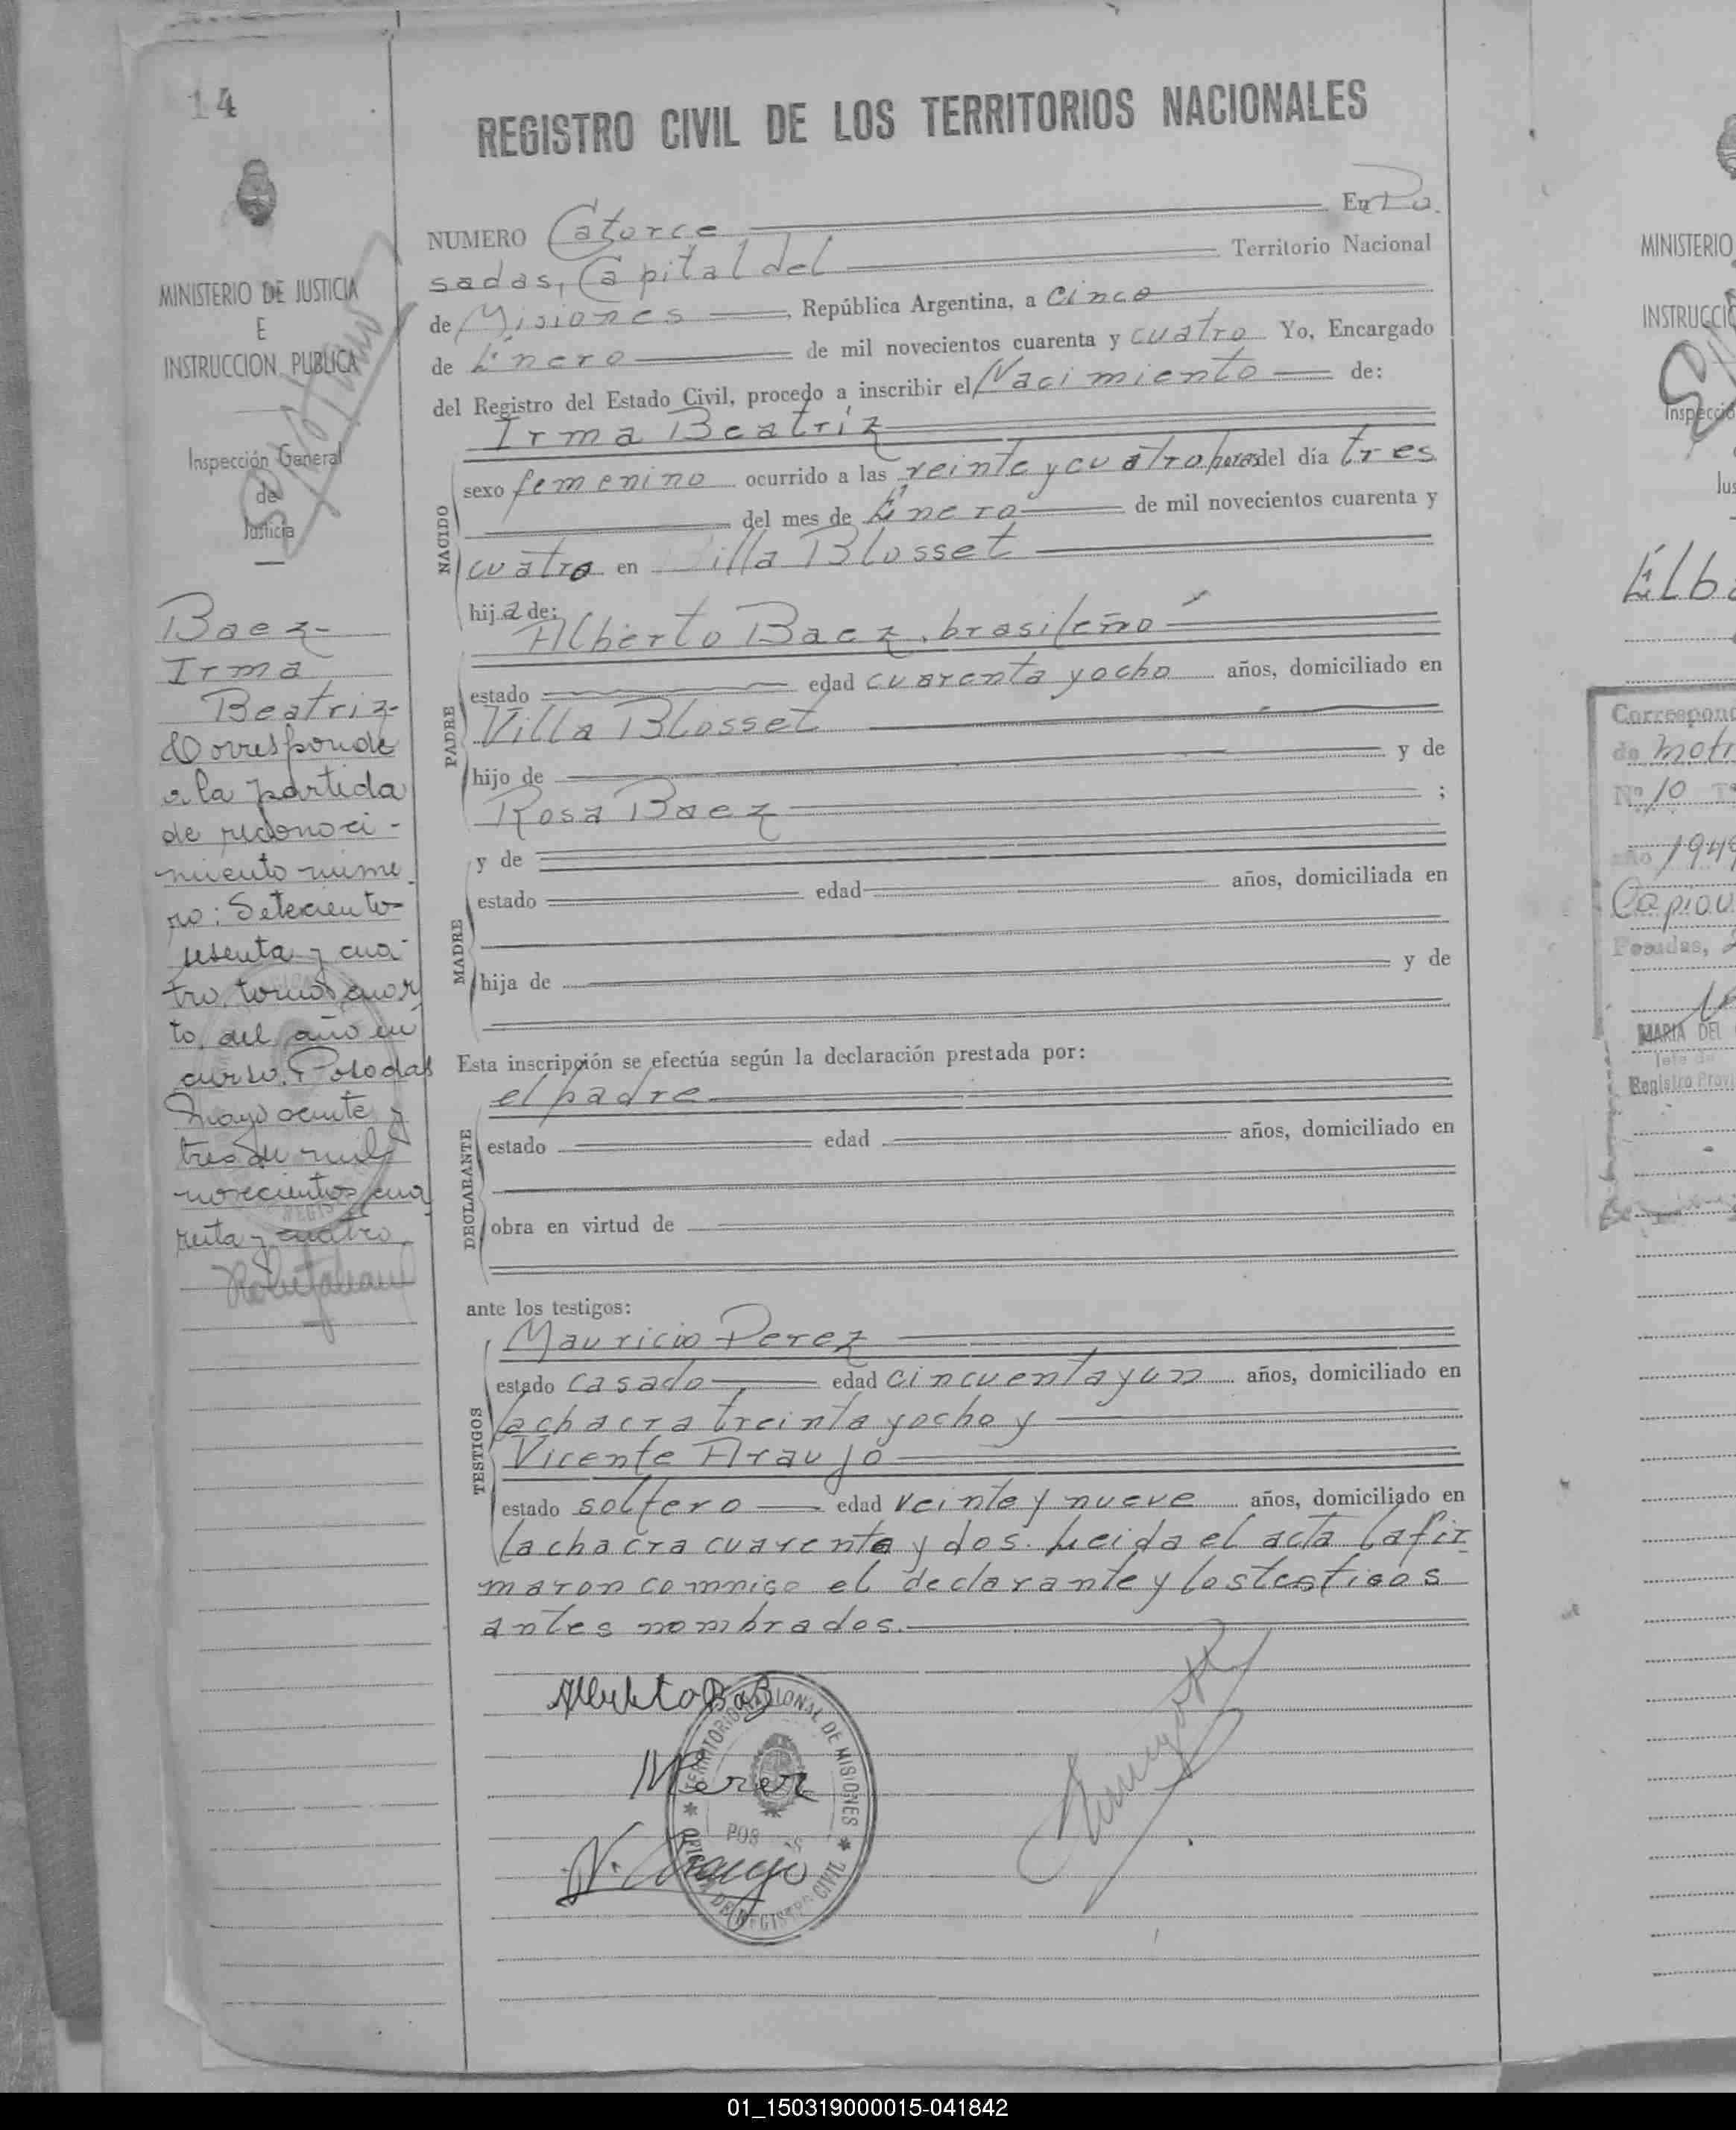 14
REGISTRO CIVIL DE LOS TERRITORIOS NACIONALES
NUMERO Catorce En Po.
sadas, Capital del Territorio Nacional
de Misiones, República Argentina, a cinco
de Enero de mil novecientos cuarenta y cuatro Yo, Encargado
del Registro del Estado Civil, procedo a inscribir el Nacimiento de:
Irma Beatriz
NACIDO
sexo femenino ocurrido a las veinte y cuatro horas del día tres
del mes de Enero de mil novecientos cuarenta y
cuatro en Villa Blosset
hija de:
PADRE
Alberto Baez, brasileño
estado edad cuarenta y ocho años, domiciliado en
Villa Blosset
hijo de y de
Rosa Baez ;
MADRE
y de
estado edad años, domiciliada en
hija de y de
Esta inscripción se efectúa según la declaración prestada por:
DECLARANTE
el padre
estado edad años, domiciliado en
obra en virtud de
ante los testigos:
TESTIGOS
Mauricio Perez
estado casado edad cincuenta y un años, domiciliado en
la chacra treinta y ocho y
Vicente Araujo
estado soltero edad veinte y nueve años, domiciliado en
la chacra cuarenta y dos. Leida el acta la fir
maron conmigo el declarante y los testigos
antes nombrados.
Alberto Baez
M Perez
V. Araujo
TERRITORIO NACIONAL DE MISIONES
OFICINA DE REGISTRO CIVIL
MINISTERIO DE JUSTICIA
E
INSTRUCCION PUBLICA
Inspección General
de
Justicia
Baez
Irma
Beatriz
Corresponde
a la partida
de reconoci-
miento nume
ro: Setecientos
sesenta y cua-
tro, tomo cuar
to, del año en
curso. Posadas
Mayo veinte y
tres de mil
novecientos cua
renta y cuatro.
MINISTERIO
INSTRUCCIO
Inspecció
Jus
Elb
Correspond
de
Nº 10 Tº
año 194
Posadas,
MARIA DEL
Jefe de
Registro Provi
01_150319000015-041842